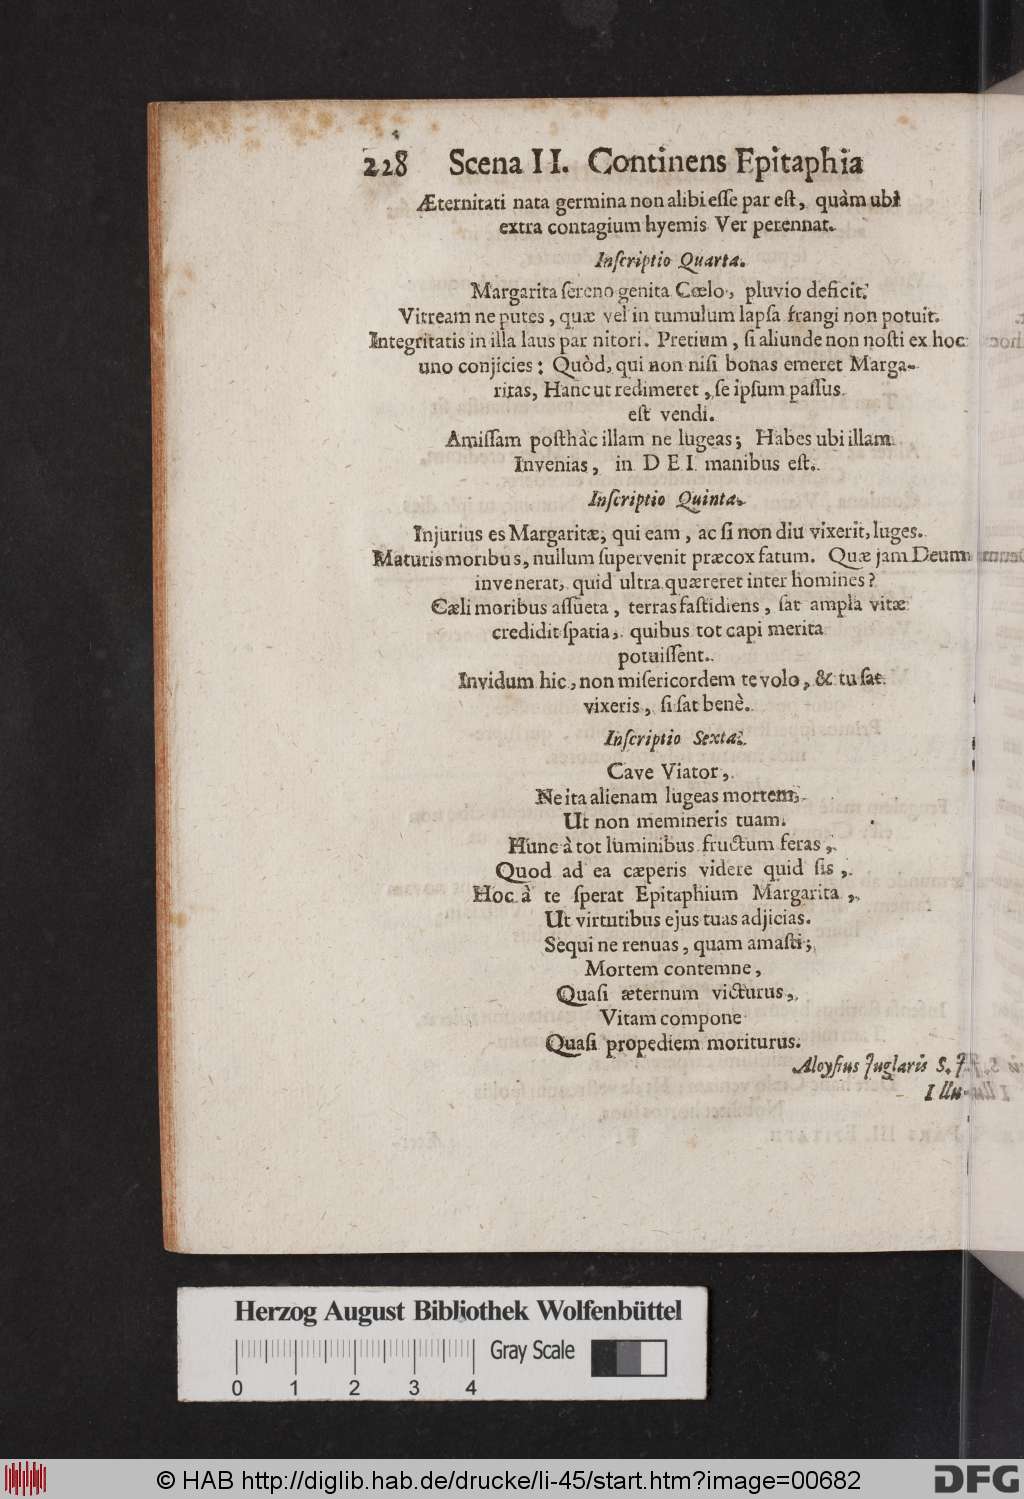 228 Scena II. Continens Epitaphia
Æternitati nata germina non alibi esse par est, quàm ubi
extra contagium hyemis Ver perennat.
Inſcriptio Quarta.
Margarita ſereno genita Cœlo, pluvio deficit.
Vitream ne putes, quæ vel in tumulum lapſa frangi non potuit.
Integritatis in illa laus par nitori. Pretium, ſi aliunde non noſti ex hoc
uno conjicies: Quòd, qui non niſi bonas emeret Marga-
ritas, Hanc ut redimeret, ſe ipſum paſſus
eſt vendi.
Amiſſam poſthàc illam ne lugeas; Habes ubi illam
Invenias, in DEI manibus eſt.
Inſcriptio Quinta.
Injurius es Margaritæ, qui eam, ac ſi non diu vixerit, luges.
Maturis moribus, nullum ſupervenit præcox fatum. Quæ jam Deum
invenerat, quid ultra quæreret inter homines?
Cæli moribus aſſueta, terras faſtidiens, ſat ampla vitæ
credidit ſpatia, quibus tot capi merita
potuiſſent.
Invidum hic, non miſericordem te volo, & tu ſat
vixeris, ſi ſat benè.
Inſcriptio Sexta.
Cave Viator,
Ne ita alienam lugeas mortem,
Ut non memineris tuam.
Hunc à tot luminibus fructum feras,
Quod ad ea cæperis videre quid ſis,
Hoc à te ſperat Epitaphium Margarita,
Ut virtutibus ejus tuas adjicias.
Sequi ne renuas, quam amaſti;
Mortem contemne,
Quaſi æternum victurus,
Vitam compone
Quaſi propediem moriturus.
Aloyſius Juglaris S. J.
Illu-
Herzog August Bibliothek Wolfenbüttel
Gray Scale
0 1 2 3 4
© HAB http://diglib.hab.de/drucke/li-45/start.htm?image=00682
DFG